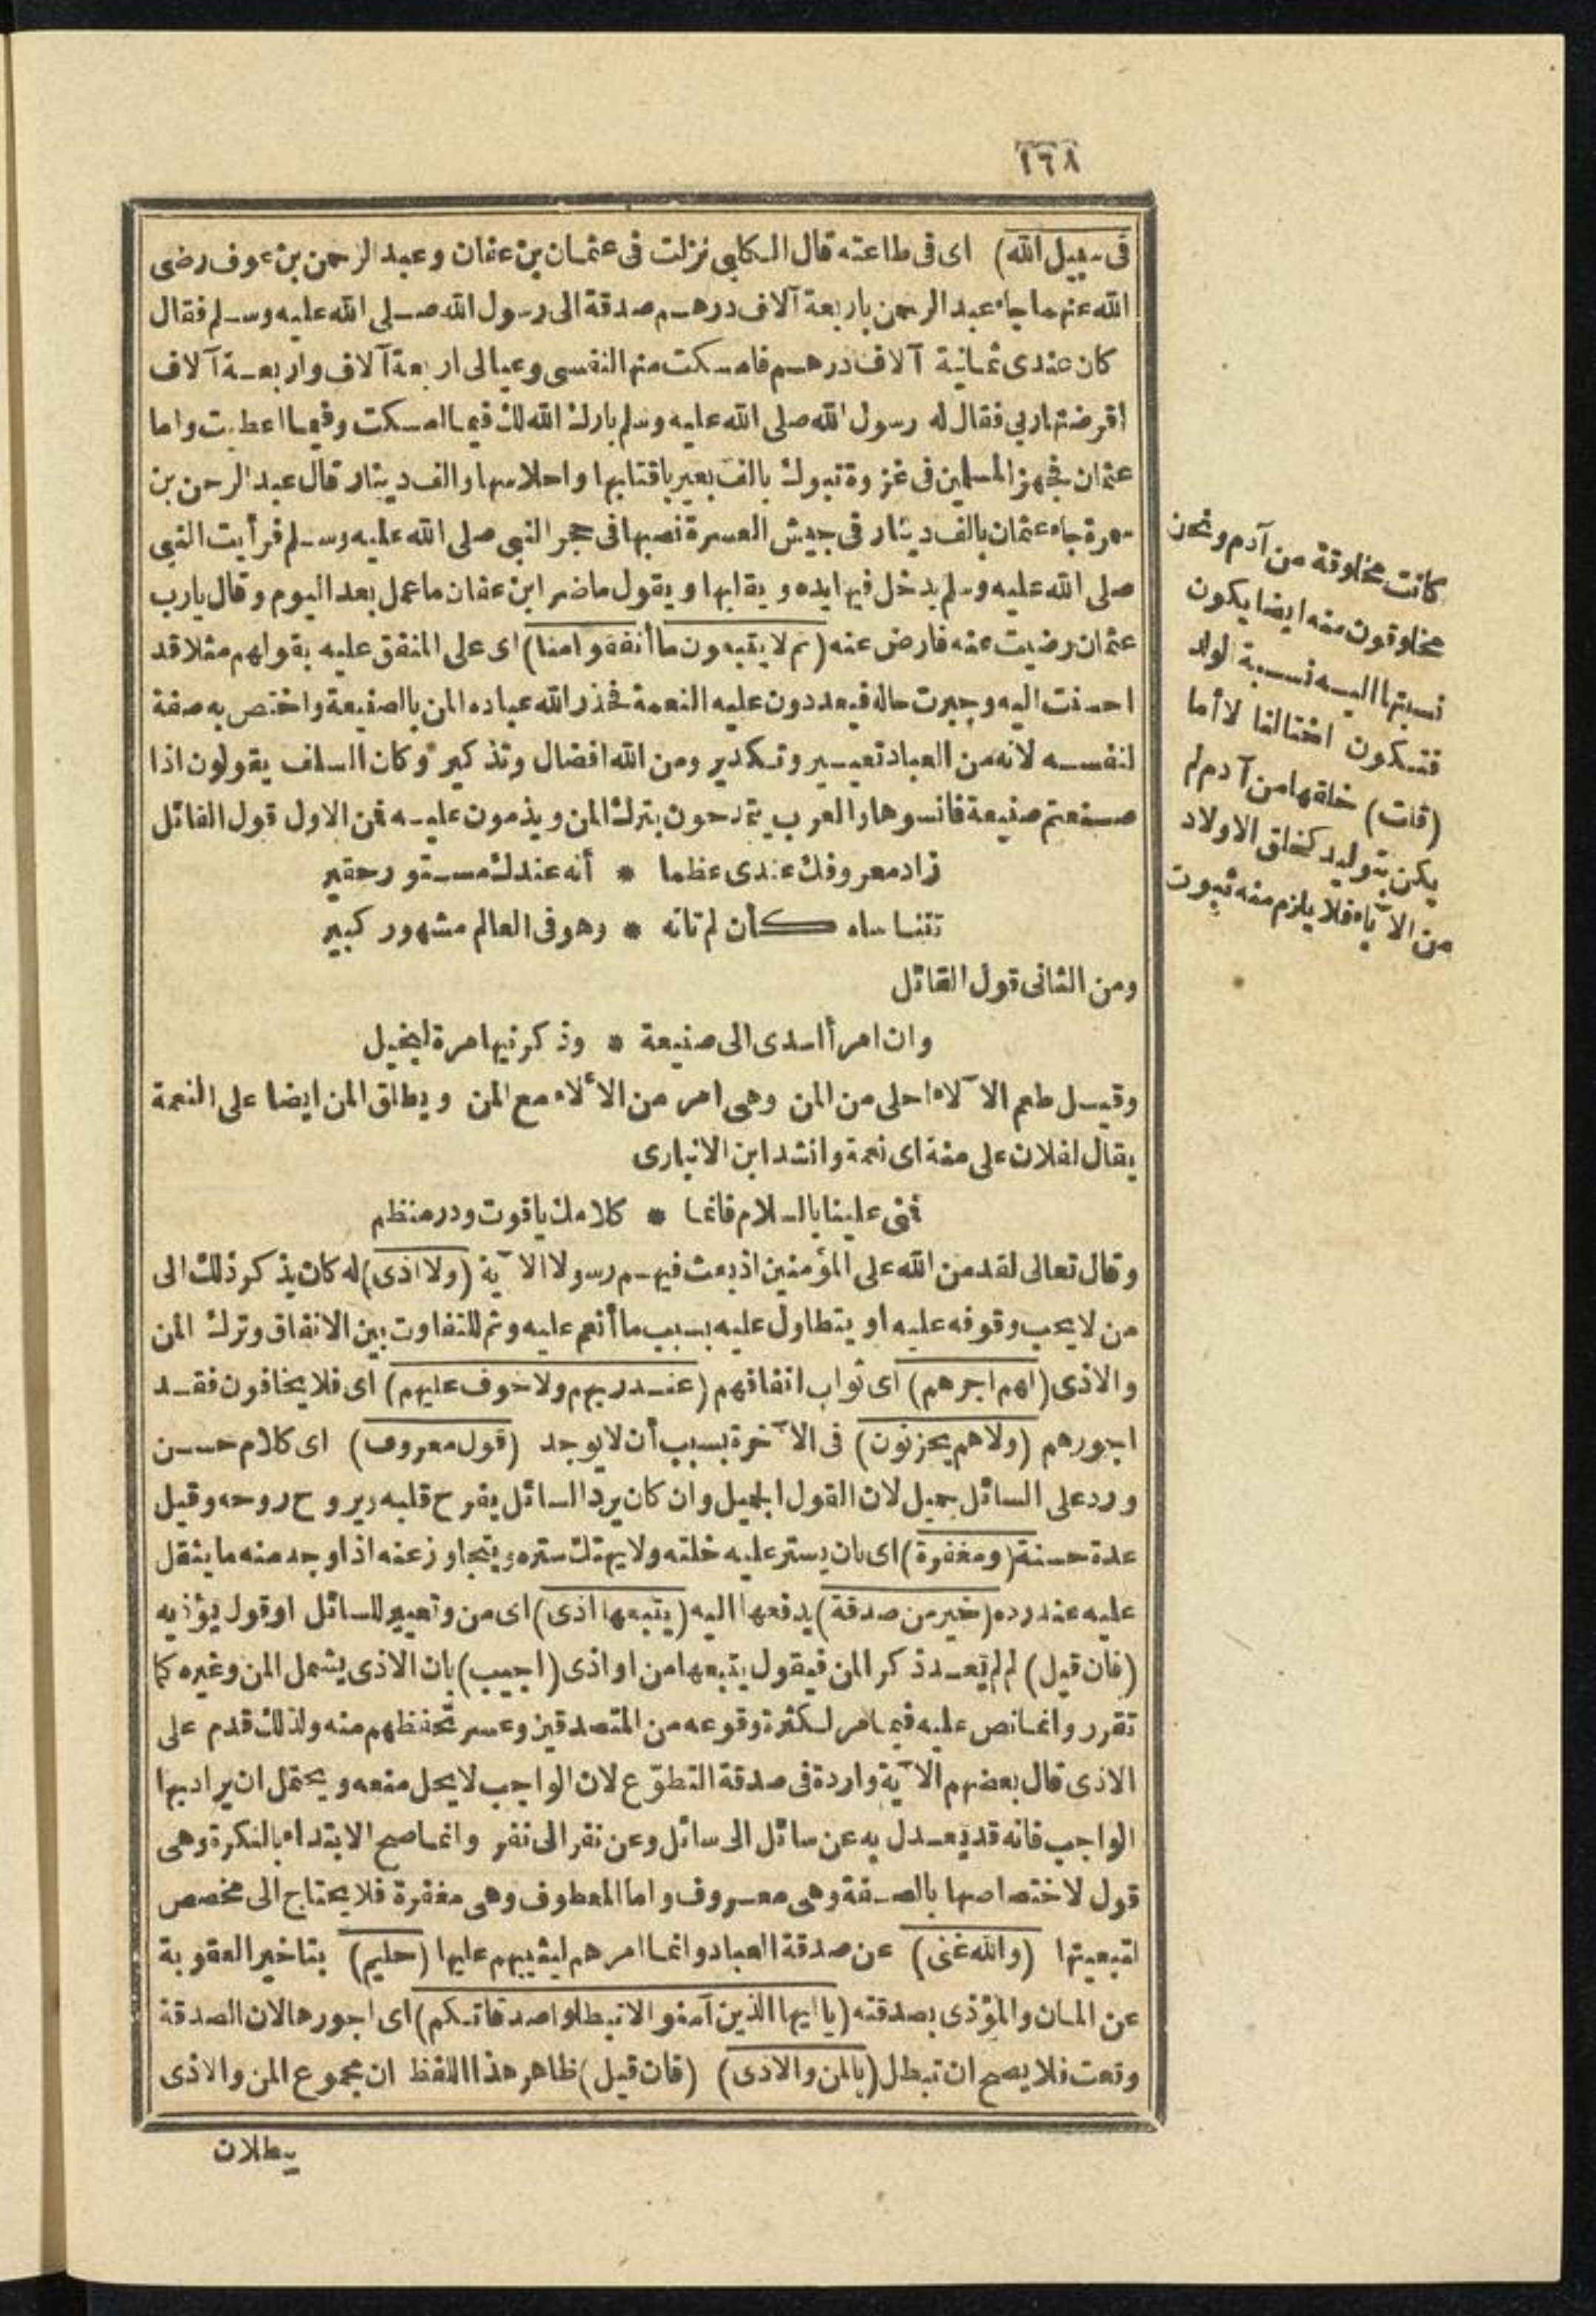 ١٦٨
في سبيل الله) اى في طاعته قال الكلبي نزلت في عثمان بن عفان وعبد الرحمن بن عوف رضى
الله عنهما جاء عبد الرحمن باربعة آلاف درهم صدقة الى رسول الله صلى الله عليه وسلم فقال
كان عندى ثمانية آلاف درهم فامسكت منها لنفسى وعيالى اربعة آلاف واربعة آلاف
أقرضتها ربي فقال له رسول الله صلى الله عليه وسلم بارك الله لك فيما امسكت وفيما اعطيت واما
عثمان فجهز المسلمين في غزوة تبوك بالف بعير باقتابها واحلاسها والف دينار قال عبد الرحمن بن
سمرة جاء عثمان بالف دينار في جيش العسرة فصبها في حجر النبي صلى الله عليه وسلم فرأيت النبي
صلى الله عليه وسلم يدخل فيها يده ويقلبها ويقول ما ضر ابن عفان ما عمل بعد اليوم وقال يا رب
عثمان رضيت عنه فارض عنه (ثم لا يتبعون ما أنفقوا منا) اى على المنفق عليه بقولهم مثلا قد
احسنت اليه وجبرت حاله فيعددون عليه النعمة فحذر الله عباده المن بالصنيعة واختص به صفة
لنفسه لانه من العباد تعيير وتكدير ومن الله افضال وتذكير وكان السلف يقولون اذا
صنعتم صنيعة فانسوها والعرب يتمدحون بترك المن ويذمون عليه فمن الاول قول القائل
زاد معروفك عندى عظما * أنه عندك مستور حقير
تتناساه كأن لم تاته * وهو في العالم مشهور كبير
ومن الثاني قول القائل
وان امرأ اسدى الى صنيعة * وذكرنيها مرة لبخيل
وقيل طعم الآلاء احلى من المن وهى امر من الألاء مع المن ويطلق المن ايضا على النعمة
يقال لفلان على منة اى نعمة وانشد ابن الانبارى
فمنى علينا بالسلام فانما * كلامك ياقوت ودر منظم
وقال تعالى لقد من الله على المؤمنين اذ بعث فيهم رسولا الآية (ولا اذى) له كان يذكر ذلك الى
من لا يحب وقوفه عليه او يتطاول عليه بسبب ما أنعم عليه وثم للتفاوت بين الانفاق وترك المن
والاذى (لهم اجرهم) اى ثواب انفاقهم (عند ربهم ولا خوف عليهم) اى فلا يخافون فقد
اجورهم (ولا هم يحزنون) في الآخرة بسبب أن لا يوجد (قول معروف) اى كلام حسن
ورد على السائل جميل لان القول الجميل وان كان يرد السائل يفرح قلبه ويروح روحه وقيل
عدة حسنة (ومغفرة) اى بان يستر عليه خلته ولا يهتك ستره ويتجاوز عنه اذا وجد منه ما يثقل
عليه عند رده (خير من صدقة) يدفعها اليه (يتبعها اذى) اى من وتعيير للسائل او قول يؤذيه
(فان قيل) لم لم يعد ذكر المن فيقول يتبعها من او اذى (اجيب) بان الاذى يشمل المن وغيره كما
تقرر وانما نص عليه فيما مر لكثرة وقوعه من المتصدقين وعسر تحفظهم منه ولذلك قدم على
الاذى قال بعضهم الآية واردة في صدقة التطوّع لان الواجب لا يحل منعه ويحتمل ان يراد بها
الواجب فانه قد يعدل به عن سائل الى سائل وعن نفر الى نفر وانما صح الابتداء بالنكرة وهى
قول لاختصاصها بالصفة وهى معروف واما المعطوف وهى مغفرة فلا يحتاج الى مخصص
لتبعيتها (والله غنى) عن صدقة العباد وانما امرهم ليثيبهم عليها (حليم) بتاخير العقوبة
عن المان والمؤذى بصدقته (يا ايها الذين آمنوا لا تبطلوا صدقاتكم) اى اجورها لان الصدقة
وقعت فلا يصح ان تبطل (بالمن والاذى) (فان قيل) ظاهر هذا اللفظ ان مجموع المن والاذى
يبطلان
كانت مخلوقة من آدم ونحن
مخلوقون منه ايضا يكون
نسبتها اليه نسبة الولد
فتكون اختا لنا لا أما
(قلت) خلقها من آدم لم
يكن بتوليد كخلق الاولاد
من الآباء فلا يلزم منه ثبوت